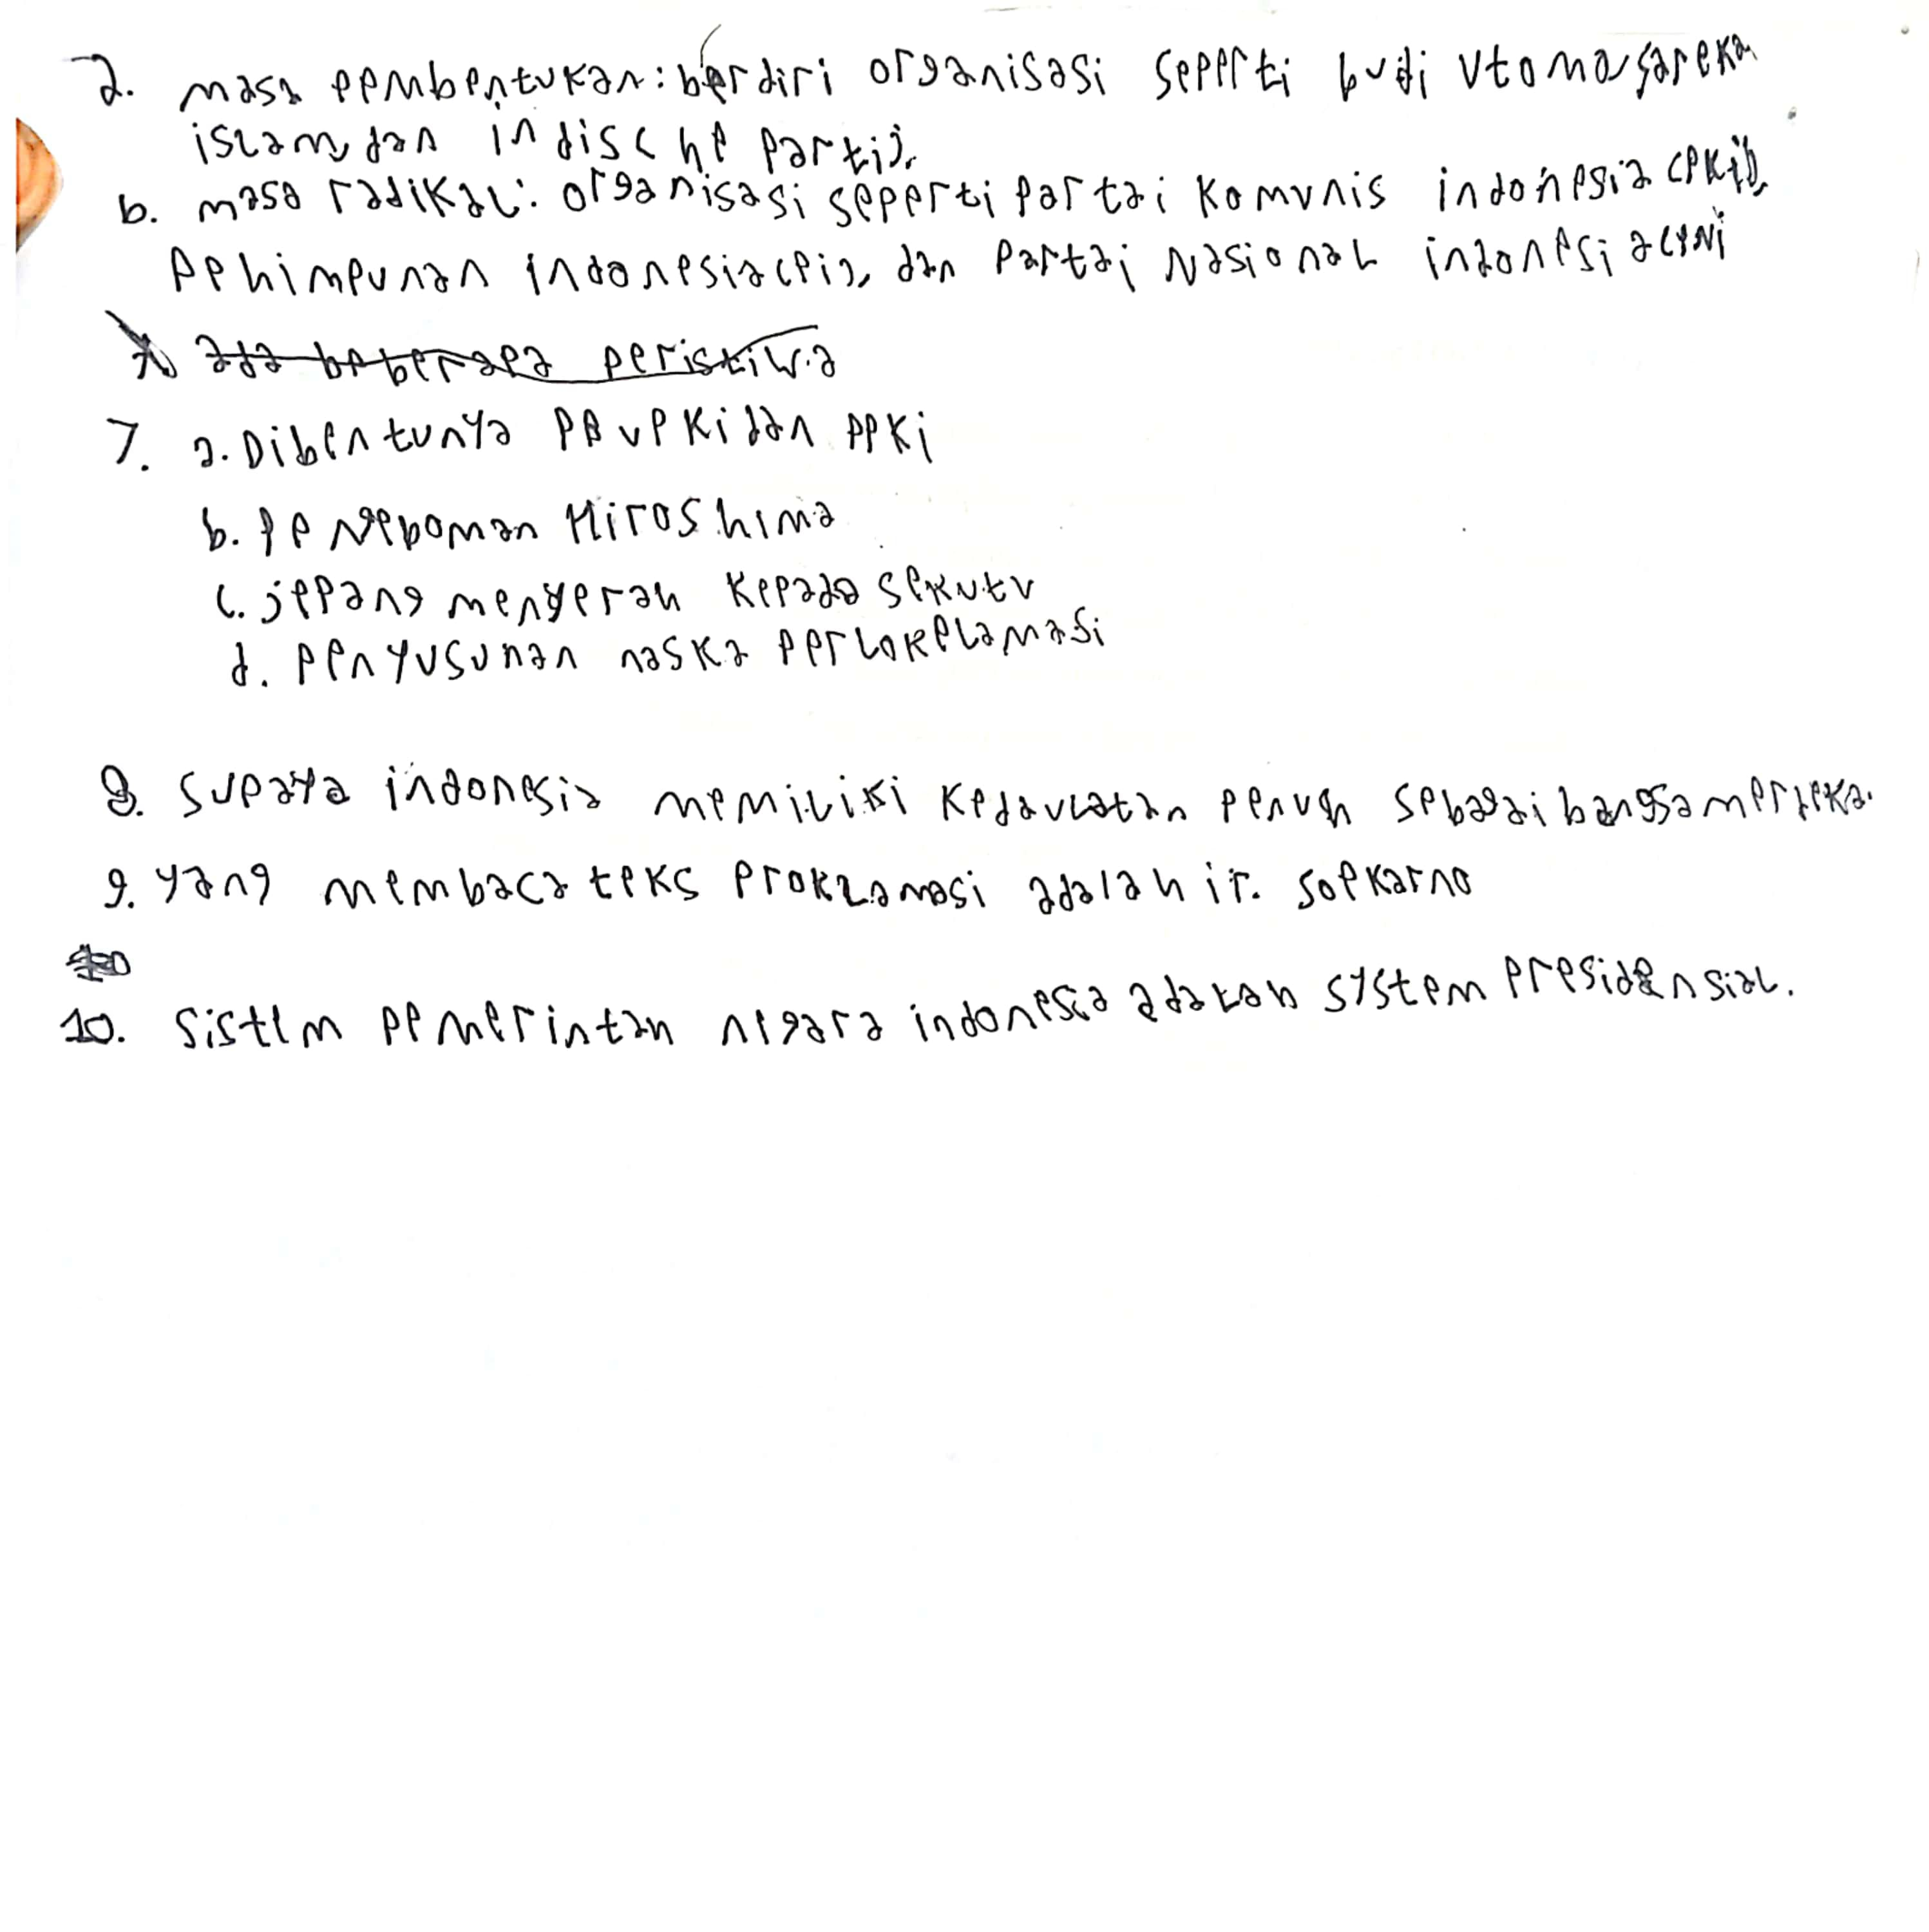 a. masa pembentukan: berdiri organisasi seperti budi utomo, sareka
islam, dan indische partij,
b. masa radikal: organisasi seperti partai komunis indonesia (PKI),
Pehimpunan indonesia (Pi), dan Partai Nasional indonesia (PNi
ada beberapa peristiwa
7. a. Dibentunya PBUPKi dan PPKi
b. Pengeboman Hiroshima
c. jepang menyerah kepada sekutu
d. penyusunan naska perlokelamasi
8. supaya indonesia memiliki kedaulatan penuh sebagai bangsa merdeka.
9. yang membaca teks proklamasi adalah ir. soekarno
10. sistem pemerintan negara indonesia adalah system presidensial.